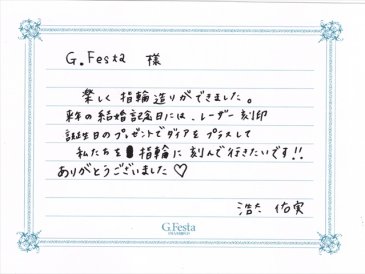 G.Festa 様
楽しく 指輪造りができました。
来年の結婚記念日には、レーザー刻印
誕生日のプレゼントでダイアをプラスして
私たちを 指輪に刻んで行きたいです!!
ありがとうございました♡
浩太 佑実
G.Festa